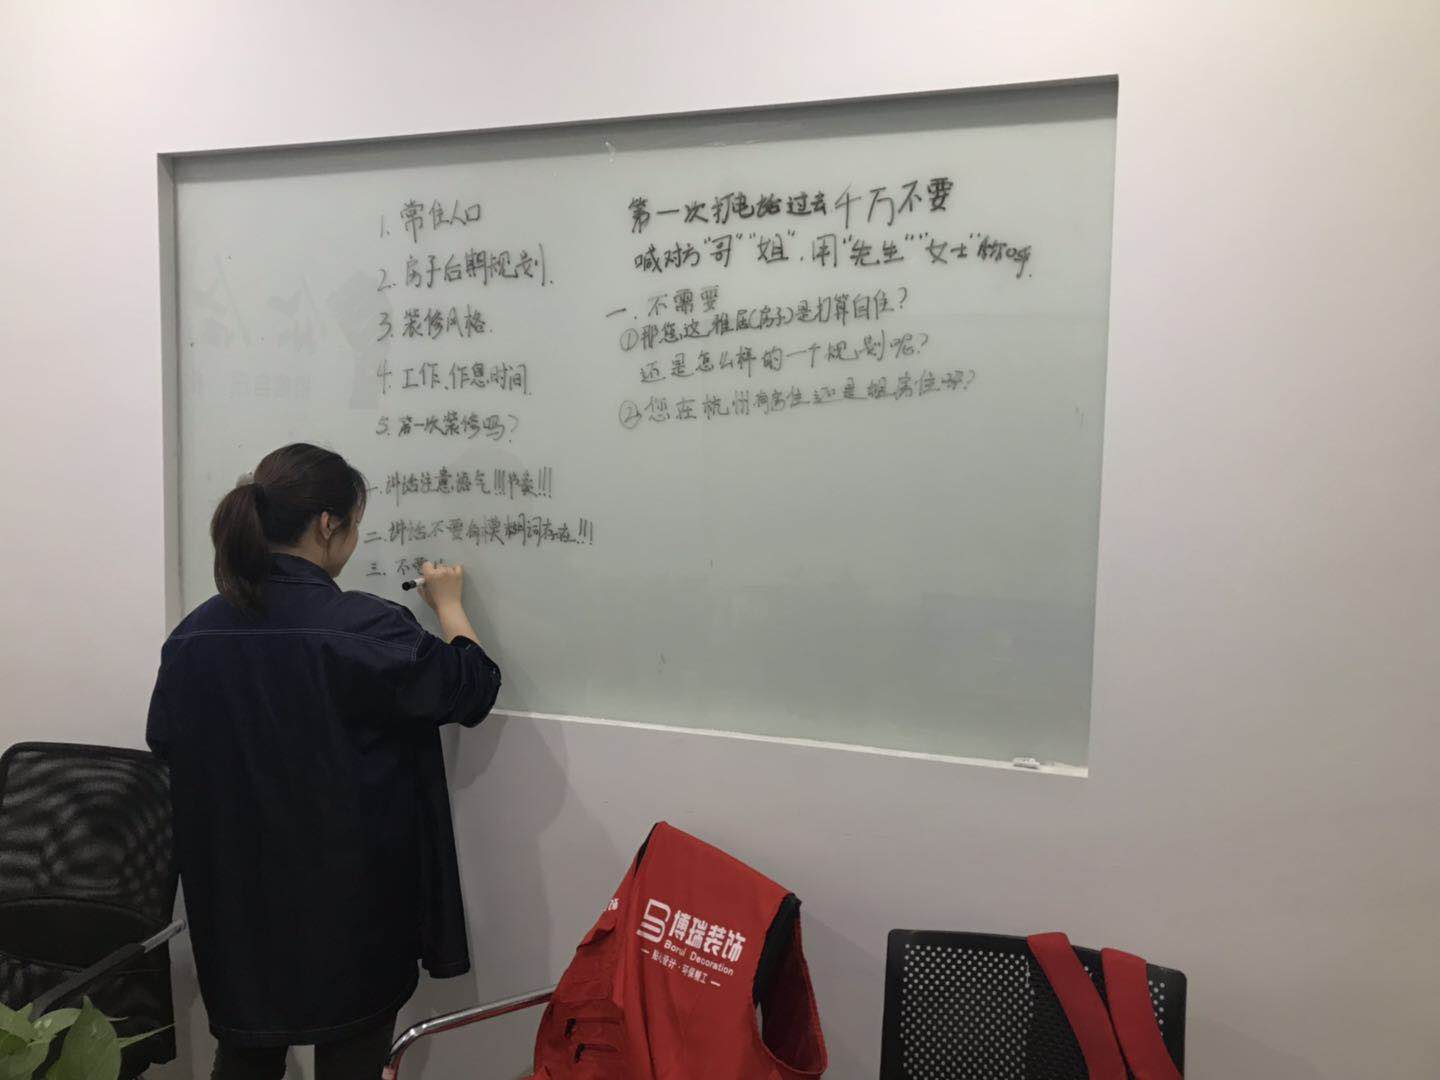 1. 常住人口
2. 房子后期规划.
3. 装修风格.
4. 工作、作息时间
5. 第一次装修吗?
一. 讲话注意语气!!!节奏!!!
二. 讲话不要有模糊词存在!!!
三. 不要
第一次打电话过去千万不要
喊对方"哥""姐".用"先生""女士"称呼.
一. 不需要
①那您这雅居(房子)是打算自住?
还是怎么样的一个规划呢?
②您在杭州有房住还是租房住呀?
博瑞装饰
Borui Decoration
贴心设计·环保精工